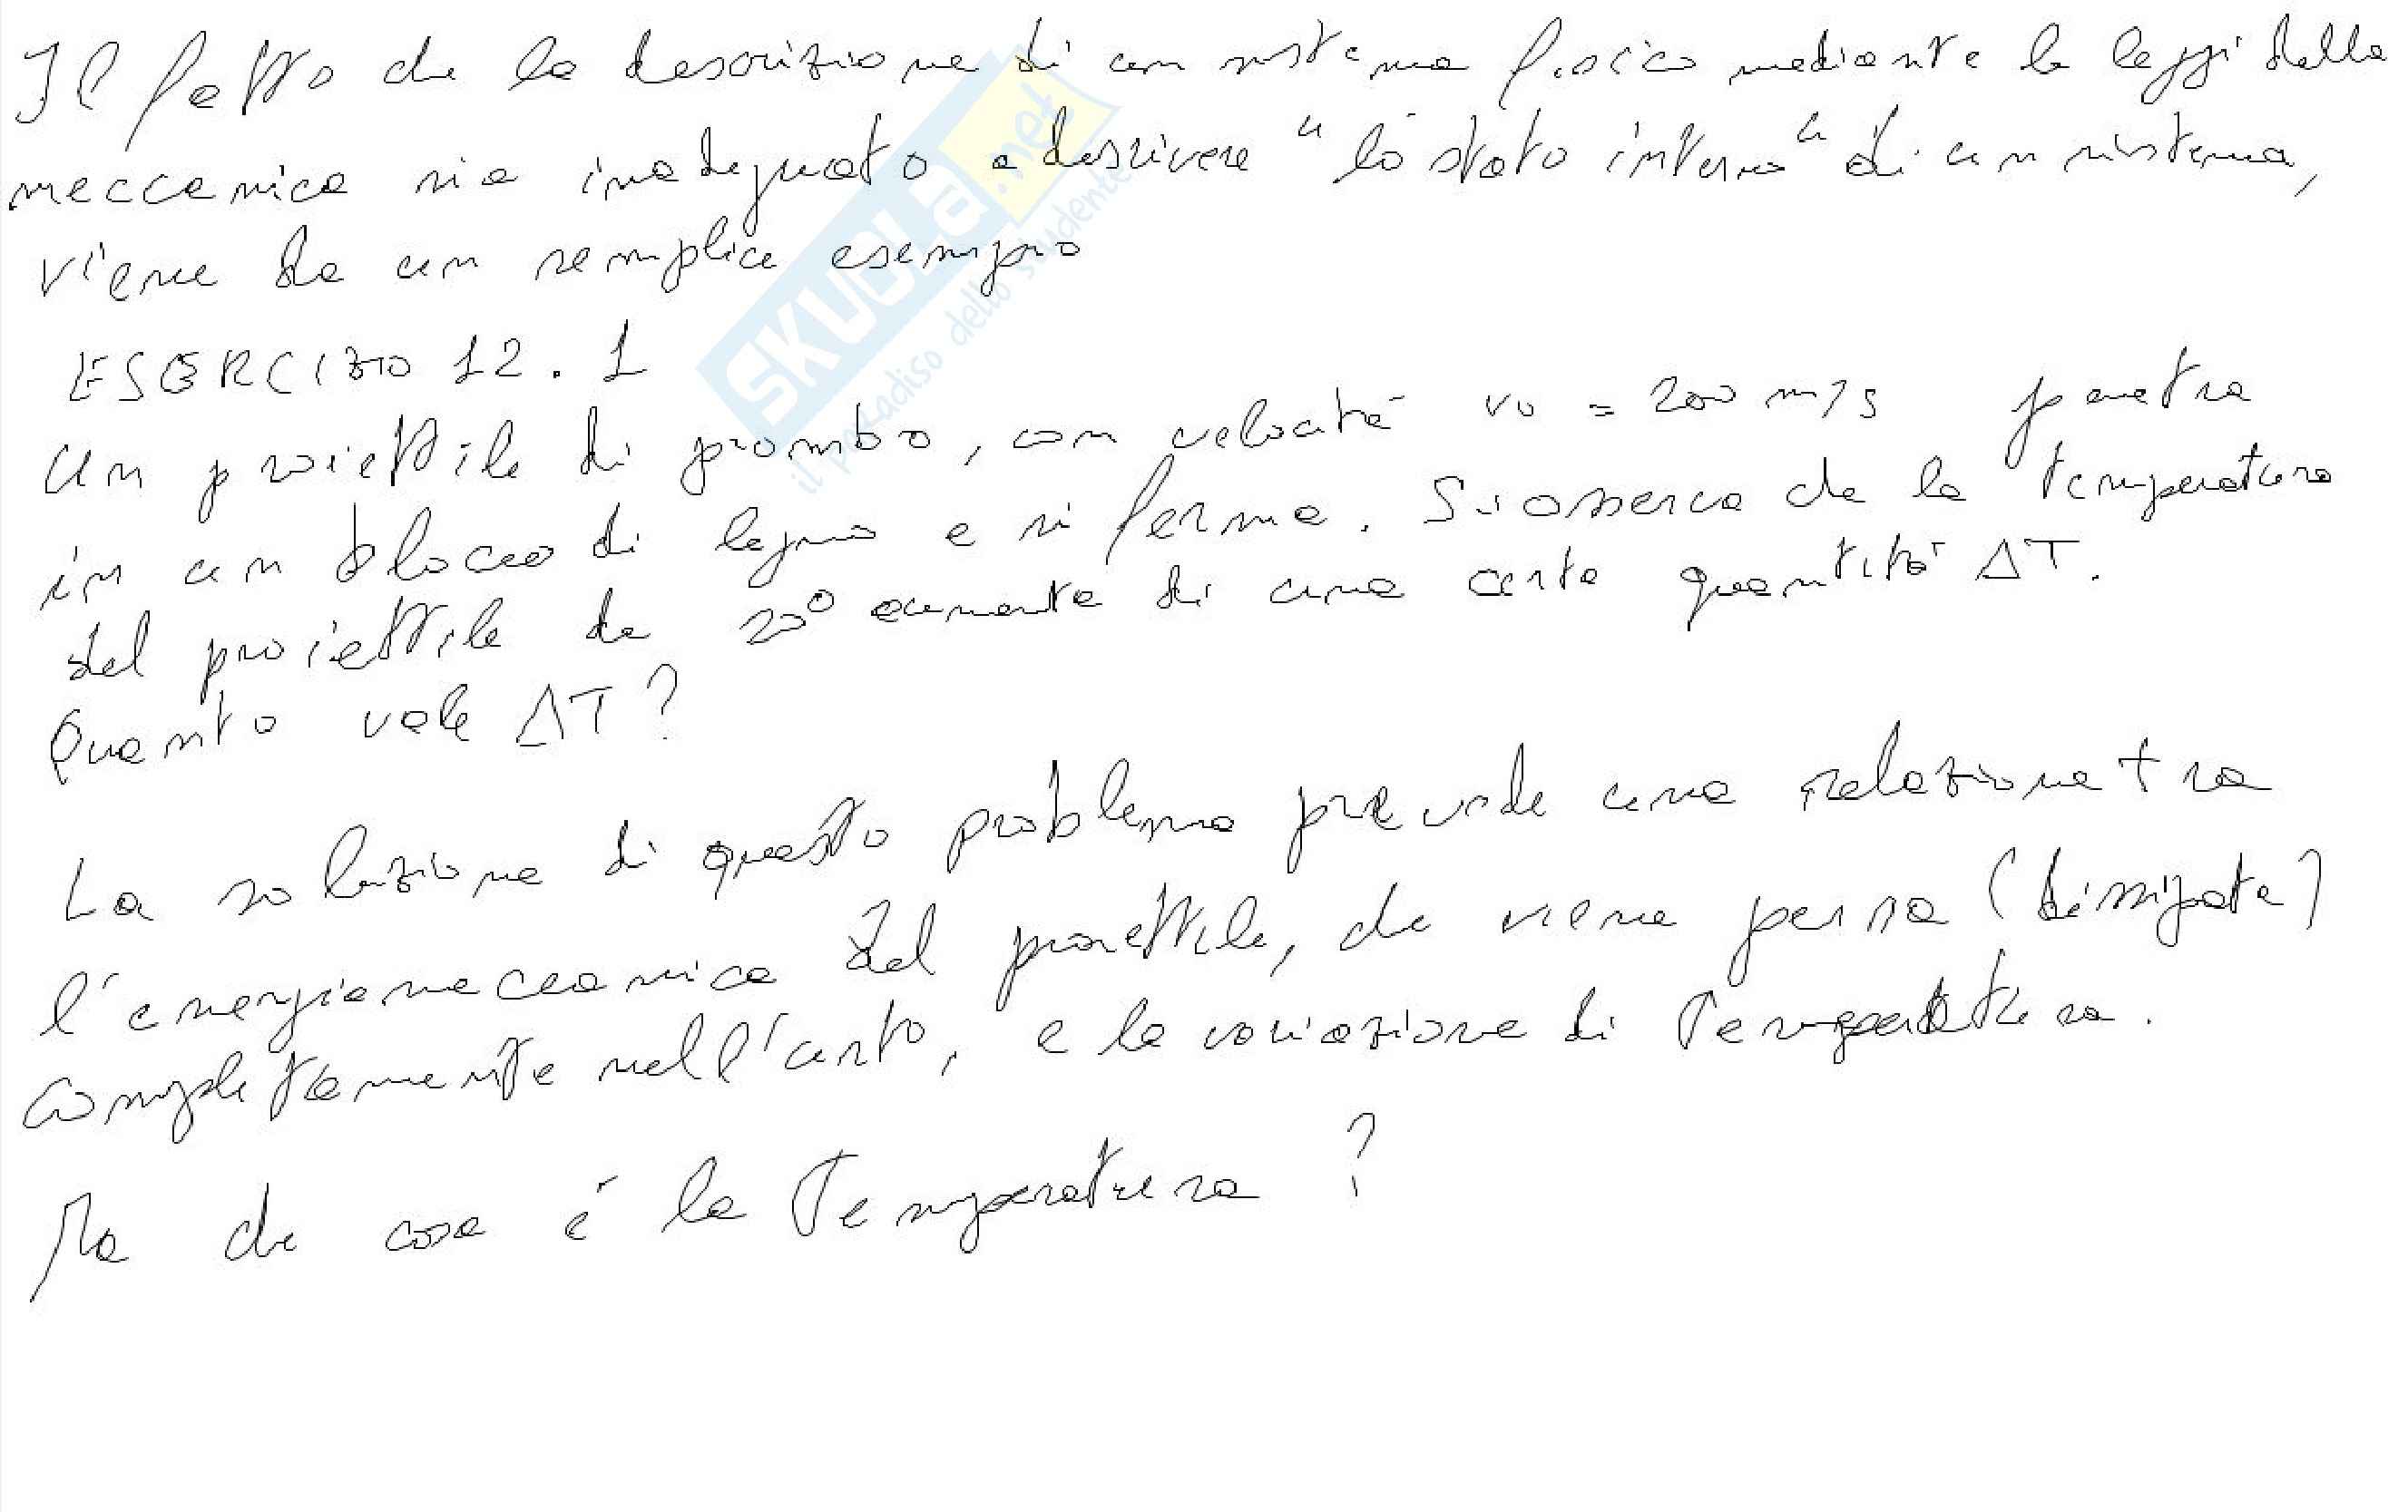 Il fatto che la descrizione di un sistema fisico mediante le leggi della
meccanica sia inadeguato a descrivere "lo stato interno" di un sistema,
viene da un semplice esempio
ESERCIZIO 12.1
Un proiettile di piombo, con velocità v0 = 200 m/s penetra
in un blocco di legno e si ferma. Si osserva che la temperatura
del proiettile da 20° aumenta di una certa quantità ΔT.
Quanto vale ΔT?
La soluzione di questo problema prevede una relazione tra
l'energia meccanica del proiettile, che viene persa (dissipata)
completamente nell'urto, e la variazione di Temperatura.
Ma che cosa è la Temperatura?
SKUOLA.net
il paradiso dello studente